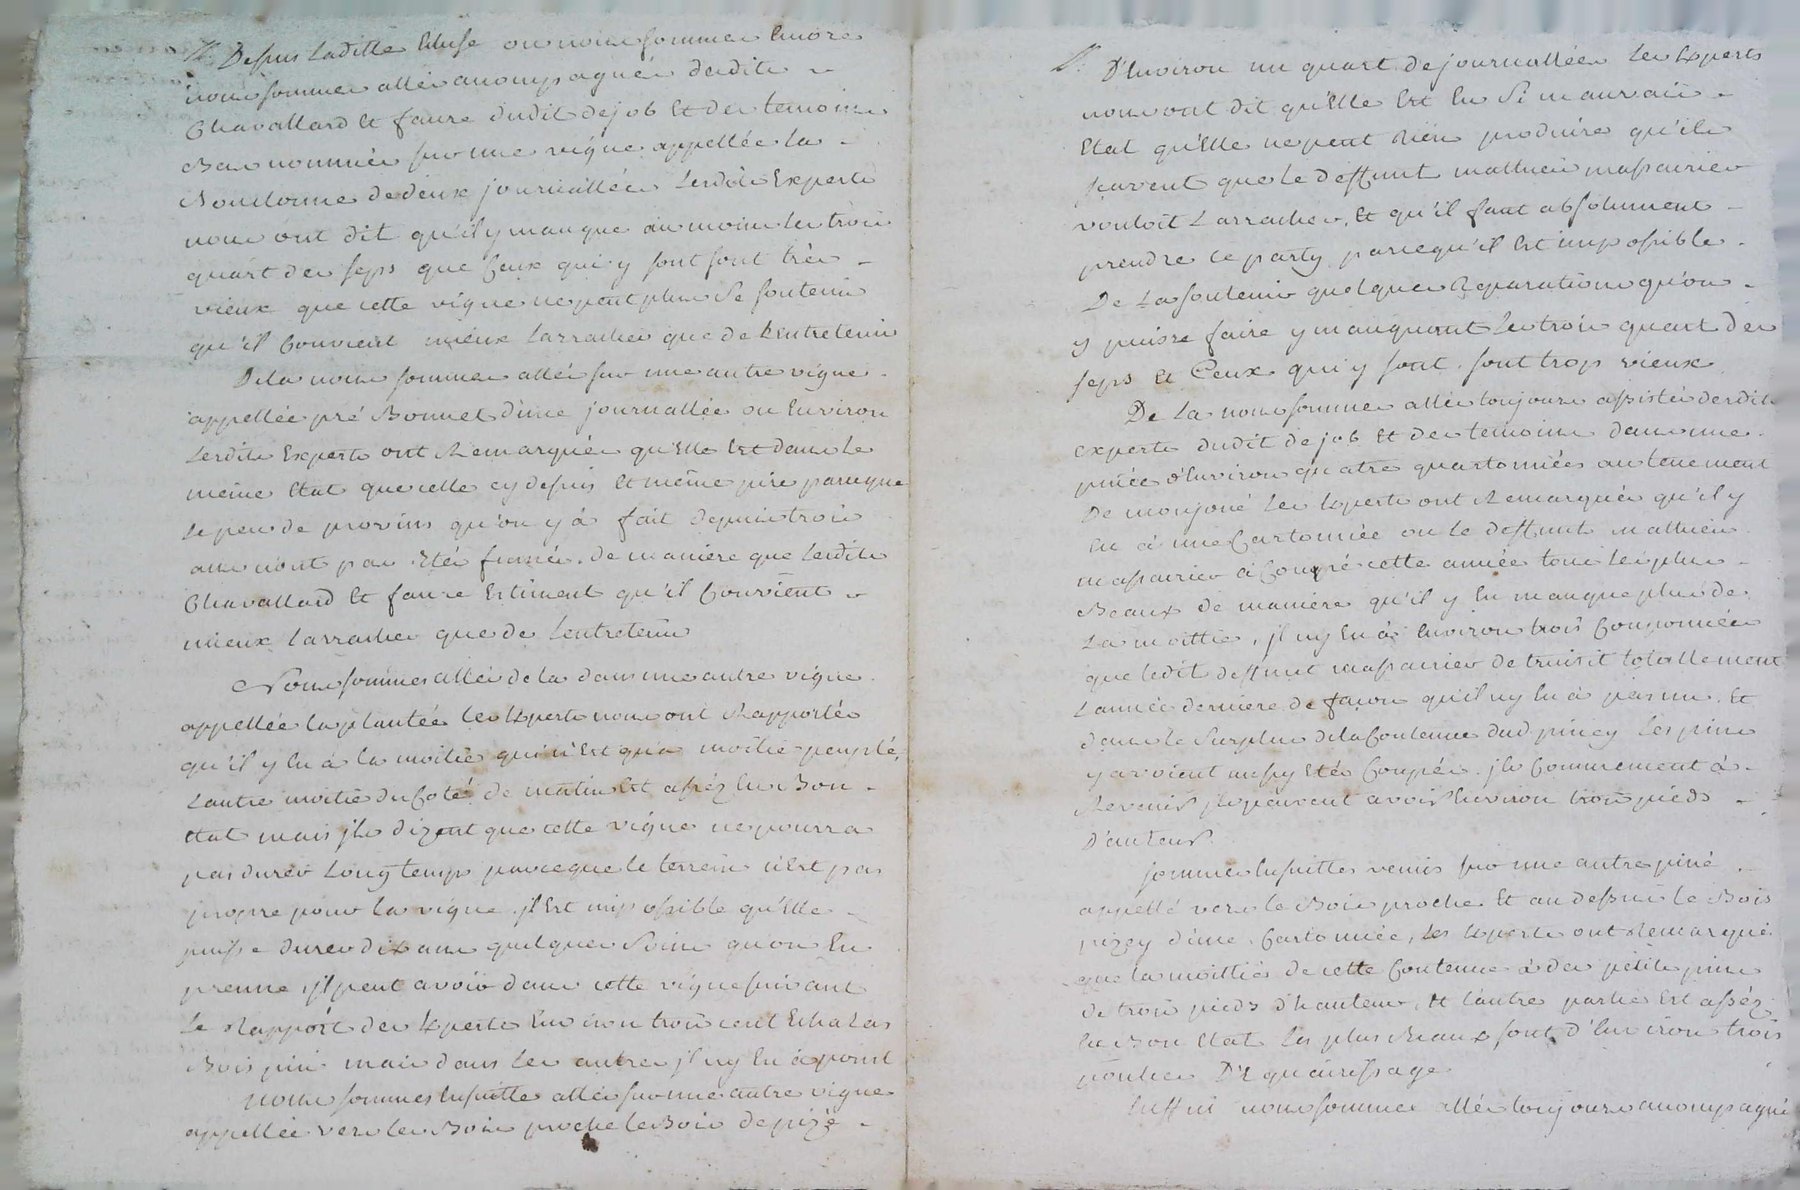 Depuis laditte Ecluse ou nous sommes Encore
nous sommes allés acompagnés desdits
Chavallard Et faure dudit dejob Et des temoins
Bas nommés sur une vigne appellée la
de deux journallées Lesdits Experts
nous ont dit qu'il y manque au moins les trois
quart des seps que Ceux qui y sont sont très
vieux que cette vigne ne peut plus Se soutenir
qu'il Convient mieux Larracher que de Lentretenir
Dela nous sommes allés sur une autre vigne
appellée pré Bonnet d'une journallée ou Environ
Lesdits Experts ont Remarqués qu'Elle Est dans le
même Etat que celle cy dessus Et même pire parceque
Le peu de provins qu'on y à fait depuis trois
ans n'ont pas Etés fumés. de maniere que Lesdits
Chavallard Et faure Estiment qu'il Convient
mieux Larracher que de Lentretenir
Nous sommes allés de la dans une autre vigne
appellée la plantée les Experts nous ont Rapportés
qu'il y En à la moitié qui n'Est qu'a moitié peuplé,
Lautre moitié du Coté de matin Est assés En Bon
Etat mais jls dizent que cette vigne ne pourra
pas durer Long temps parceque le terrein n'Est pas
propre pour la vigne. jl Est impossible qu'Elle
puisse durer dix ans quelques Soins qu'on En
prenne, jl peut avoir dans cette vigne suivant
Le Rapport des Experts Environ trois cent Echalas
Bois pin mais dans les autres jl ny En à point
Nous sommes Ensuitte allés sur une autre vigne
appellée vers les Bois proche le Bois de pizé
D'Environ un quart de journallées Les Experts
nous ont dit qu'Elle Est En Si mauvais
Etat qu'Elle ne peut Rien produire qu'ils
sçavent que le deffunt mathieu massacrier
vouloit Larracher, Et qu'il faut absolument
prendre ce party parcequ'il Est impossible
De La soutenir quelques Reparations qu'on
y puisse faire y manquant Les trois quart des
seps Et Ceux qui y sont, sont trop vieux
De La nous sommes allés toujours assistés desdits
Experts dudit dejob Et des temoins dans une
pinée d'Environ quatre quartonnées au tenement
De monjoné Les Experts ont Remarqués qu'il y
En à une Cartonnée ou le deffunt mathieu
massacrier à Coupé cette année tous les plus
Beaux de maniere qu'il y En manque plus de
La moittié, jl ny En à Environ trois Couponnées
que ledit deffunt massacrier detruisit totallement
Lannée derniere de façon qu'il ny En à pas un, Et
dans le Surplus dela Contenue dud piney Les pins
y avoient aussy Etés Coupés. jls Commencent à
Revenir jls peuvent avoir Environ trois pieds
D'auteur.
sommes Ensuittes venus sur une autre piné
appellé vers le Bois proche Et au dessus le Bois
pizey d'une Cartonnée, Les Experts ont Remarqué
que la moittiés de cette Contenue à des petits pins
de trois pieds d'hauteur, Et l'autre partie Est assés
En Bon Etat Les plus Beaux sont d'Environ trois
pouces D'Equarissage.
Enffin nous sommes allés toujours acompagné